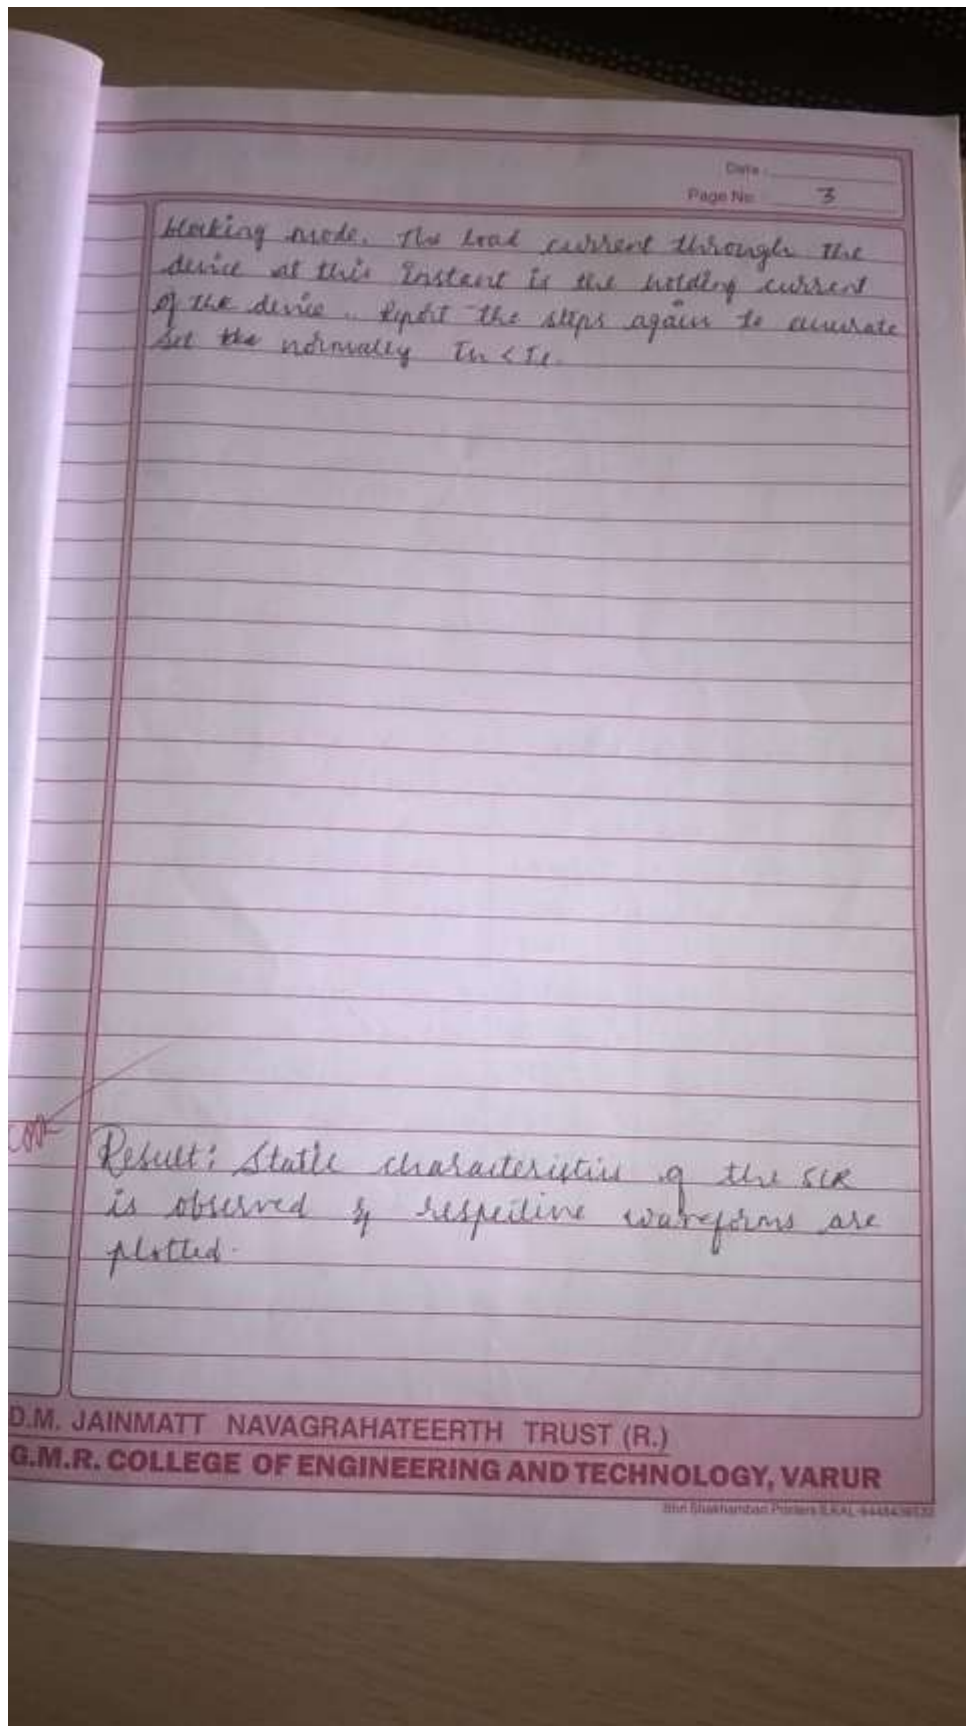 Date :
Page No : 3
blocking mode. The load current through the
device at this instant is the holding current
of the device. Repeat the steps again to accurate
set the normally IH < IL.
Result: Static characteristics of the SCR
is observed & respective waveforms are
plotted.
D.M. JAINMATT NAVAGRAHATEERTH TRUST (R.)
G.M.R. COLLEGE OF ENGINEERING AND TECHNOLOGY, VARUR